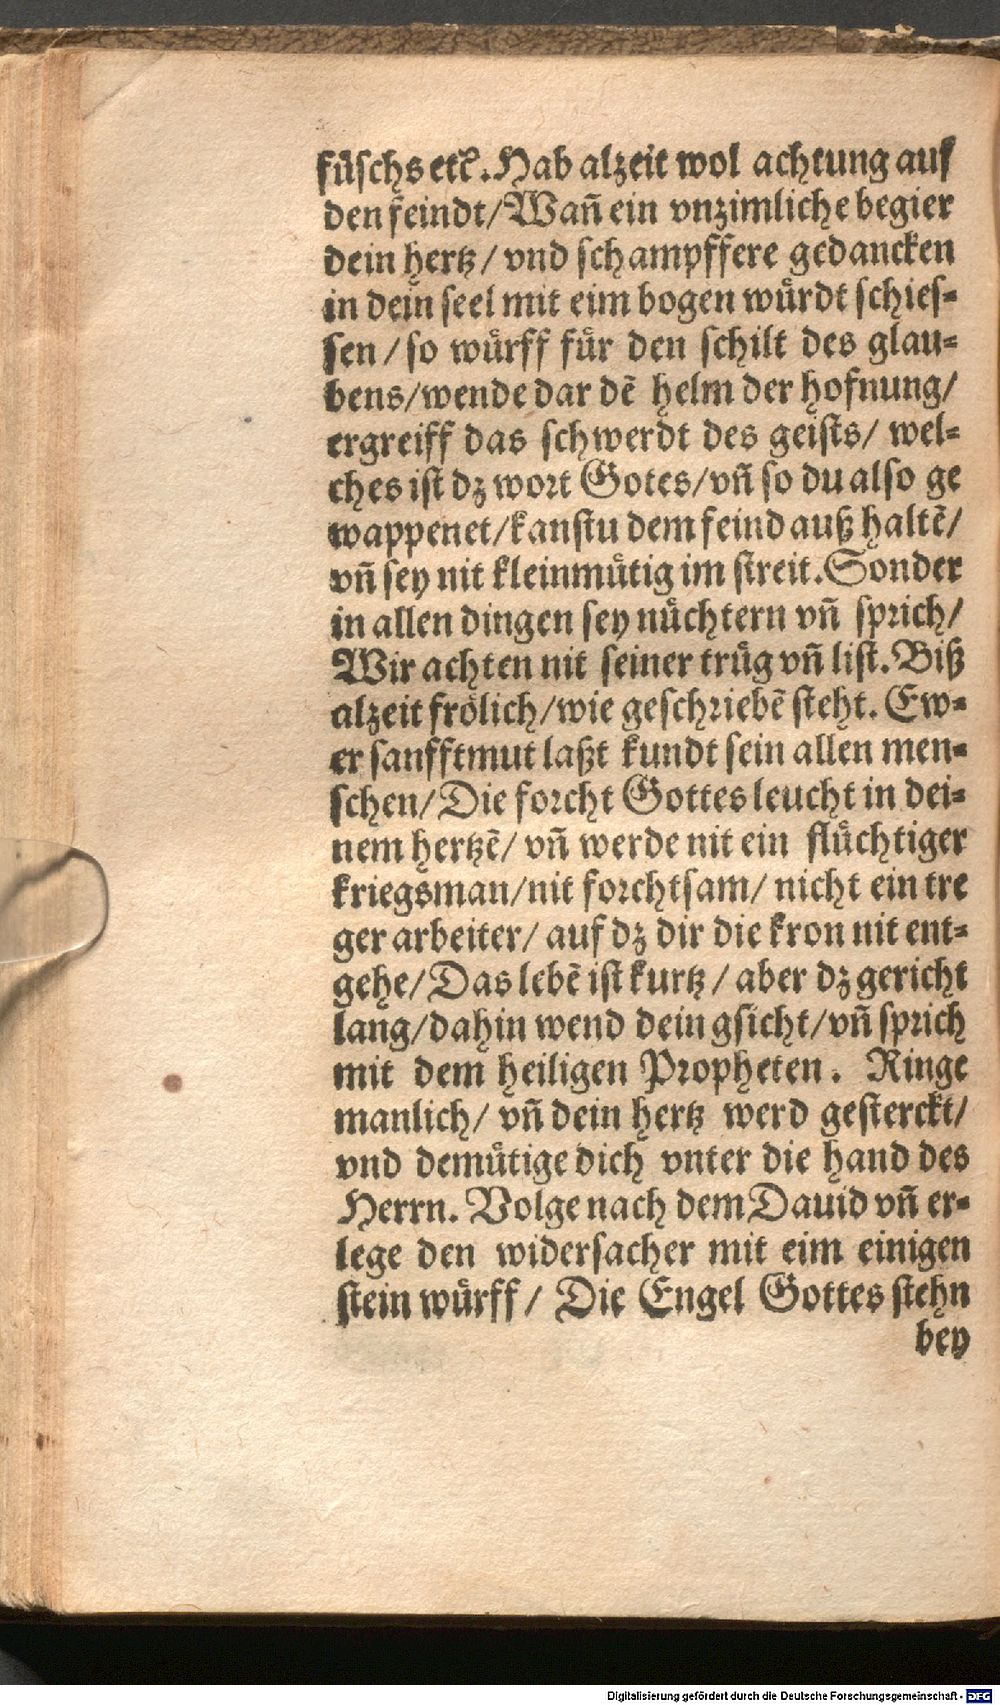 fuͤschs etc̃. Hab alzeit wol achtung auf
den feindt/Wañ ein vnzimliche begier
dein hertz/ vnd schampffere gedancken
in dein seel mit eim bogen wuͤrdt schies⸗
sen / so wuͤrff fuͤr den schilt des glau⸗
bens/wende dar dẽ helm der hofnung/
ergreiff das schwerdt des geists/ wel⸗
ches ist dz wort Gotes/vñ so du also ge
wappenet/kanstu dem feind auß haltẽ/
vñ sey nit kleinmuͤtig im streit. Sonder
in allen dingen sey nuͤchtern vñ sprich/
Wir achten nit seiner truͤg vñ list. Biß
alzeit froͤlich/wie geschriebẽ steht. Ew⸗
er sanfftmut laßt kundt sein allen men⸗
schen/Die forcht Gottes leucht in dei⸗
nem hertzẽ/ vñ werde nit ein fluͤchtiger
kriegsman/nit forchtsam/ nicht ein tre
ger arbeiter/ auf dz dir die kron nit ent⸗
gehe/Das lebẽ ist kurtz/ aber dz gericht
lang/dahin wend dein gsicht/vñ sprich
mit dem heiligen Propheten. Ringe
manlich/ vñ dein hertz werd gesterckt/
vnd demuͤtige dich vnter die hand des
Herrn. Volge nach dem Dauid vñ er⸗
lege den widersacher mit eim einigen
stein wuͤrff/ Die Engel Gottes stehn
bey
Digitalisierung gefördert durch die Deutsche Forschungsgemeinschaft - DFG